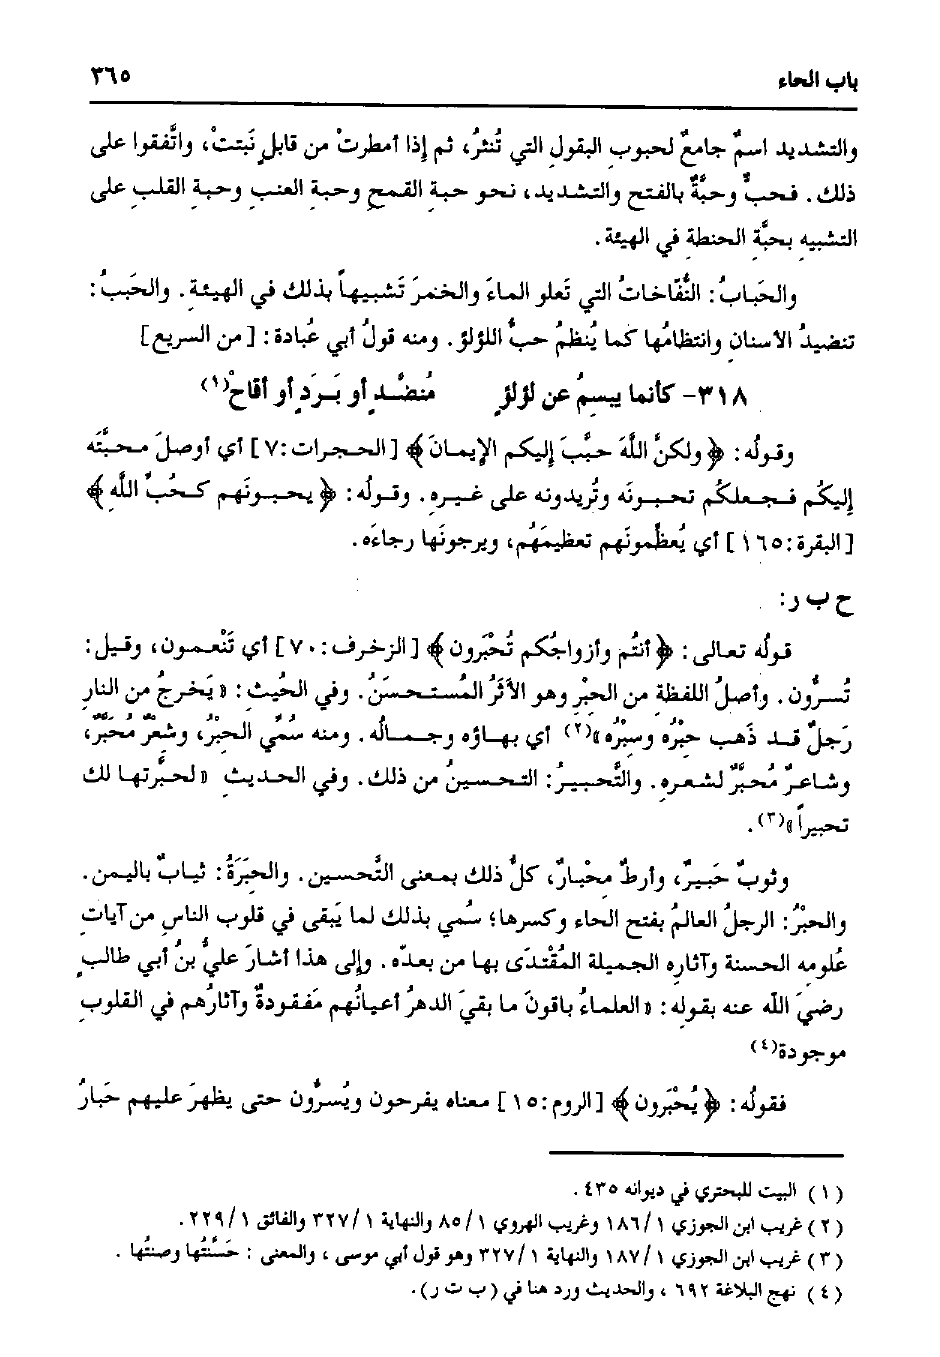 باب الحاء ٣٦٥
والتشديد اسمٌ جامعٌ لحبوب البقول التي تُنثرُ، ثم إذا أمطرتْ من قابلٍ نَبتتْ، واتَّفقوا على
ذلك. فحبٌّ وحبَّةٌ بالفتح والتشديد، نحو حبة القمح وحبة العنب وحبة القلب على
التشبيه بحبَّة الحنطة في الهيئة.
والحَبابُ: النُّفّاخاتُ التي تَعلو الماءَ والخمرَ تَشبيهاً بذلك في الهيئة. والحَببُ:
تنضيدُ الأسنان وانتظامُها كما يُنظمُ حبُّ اللؤلؤ. ومنه قولُ أبي عُبادة: [من السريع]
٣١٨- كأنما يبسمُ عن لؤلؤٍ مُنضَّدٍ أو بَرَدٍ أو أقاحْ(١)
وقولُه: ﴿ولكنَّ اللَّهَ حبَّبَ إليكم الإيمانَ﴾ [الحجرات:٧] أي أوصلَ محبَّتَه
إليكم فجعلكم تحبونَه وتُريدونه على غيره. وقولُه: ﴿يحبونَهم كحُبِّ اللَّهِ﴾
[البقرة:١٦٥] أي يُعظِّمونَهم تعظيمَهُم، ويرجونَها رجاءَه.
ح ب ر:
قولُه تعالى: ﴿أنتُم وأزواجُكم تُحْبَرون﴾ [الزخرف:٧٠] أي تَنْعمون، وقيل:
تُسرُّون. وأصلُ اللفظة من الحِبْرِ وهو الأثَرُ المُستحسَنُ. وفي الحَيث: «يَخرجُ من النارِ
رَجلٌ قد ذَهب حِبْرُه وسِبْرُه»(٢) أي بهاؤه وجمالُه. ومنه سُمِّي الحِبْرُ، وشعْرٌ مُحَبَّرٌ،
وشاعرٌ مُحبَّرٌ لشعرهِ. والتَّحبيرُ: التحسينُ من ذلك. وفي الحديث «لحبَّرتها لك
تحبيراً»(٣).
وثوبٌ حَبيرٌ، وأرطٌ محْبارٌ، كلُّ ذلك بمعنى التَّحسين. والحِبَرَةُ: ثيابٌ باليمن.
والحبْرُ: الرجلُ العالمُ بفتح الحاء وكسرها؛ سُمي بذلك لما يَبقى في قلوب الناسِ من آياتِ
عُلومه الحسنة وآثارِه الجميلة المُقْتدَى بها من بعدَه. وإلى هذا أشارَ عليُّ بنُ أبي طالبٍ
رضيَ الله عنه بقوله: «العلماءُ باقونَ ما بقيَ الدهرُ أعيانُهم مَفقودةٌ وآثارُهم في القلوبِ
موجودة(٤)
فقولُه: ﴿يُحْبَرون﴾ [الروم:١٥] معناه يفرحون ويُسرُّون حتى يظهرَ عليهم حَبارُ
(١) البيت للبحتري في ديوانه ٤٣٥.
(٢) غريب ابن الجوزي ١/١٨٦ وغريب الهروي ١/٨٥ والنهاية ١/٣٢٧ والفائق ١/٢٢٩.
(٣) غريب ابن الجوزي ١/١٨٧ والنهاية ١/٣٢٧ وهو قول أبي موسى، والمعنى: حَسَّنتُها وصنتُها.
(٤) نهج البلاغة ٦٩٢، والحديث ورد هنا في (ب ت ر).